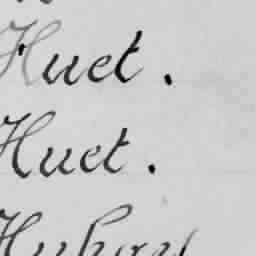 Huet.
Huet.